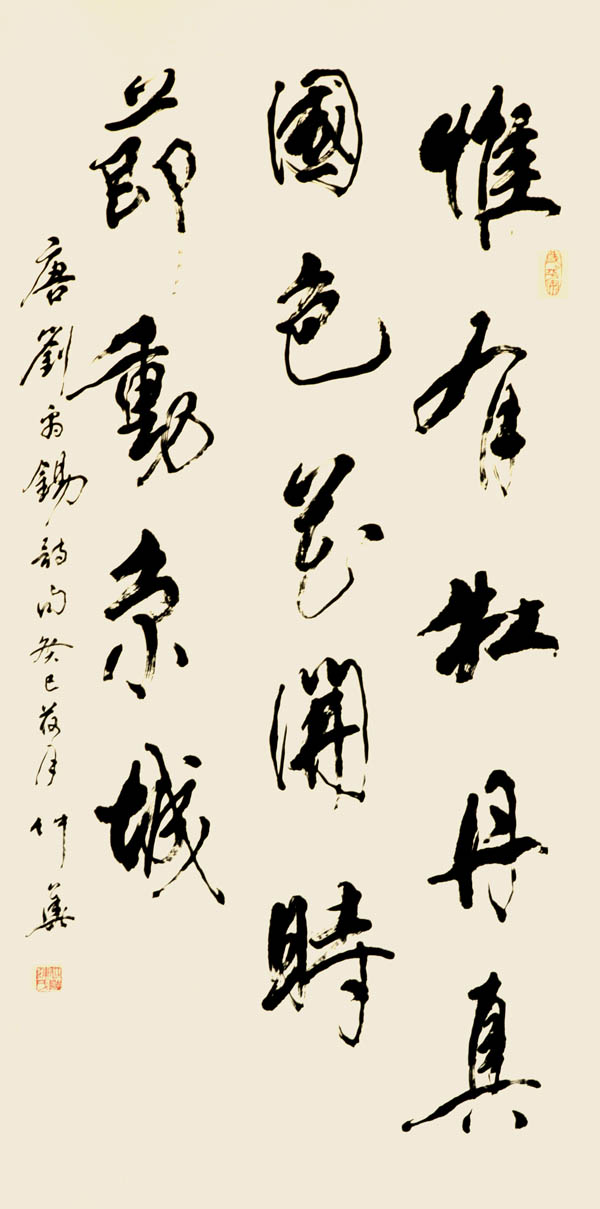 惟有牡丹真
國色花開時
節動京城
唐劉禹錫詩句癸巳荷月仲華